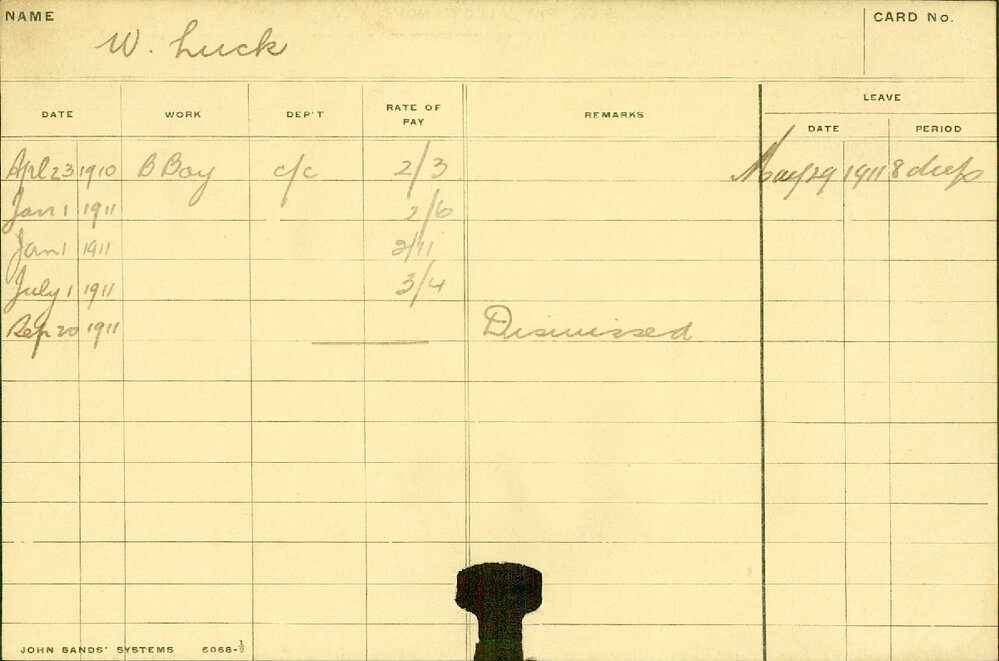 NAME W. Luck CARD No.
LEAVE
DATE WORK DEP'T RATE OF PAY REMARKS DATE PERIOD
Apl 23 1910 B Boy c/c 2/3 May 29 1911 8 days
Jan 1 1911 2/6
Jan 1 1911 2/11
July 1 1911 3/4
Sep 20 1911 Dismissed
JOHN SANDS' SYSTEMS 5068-½